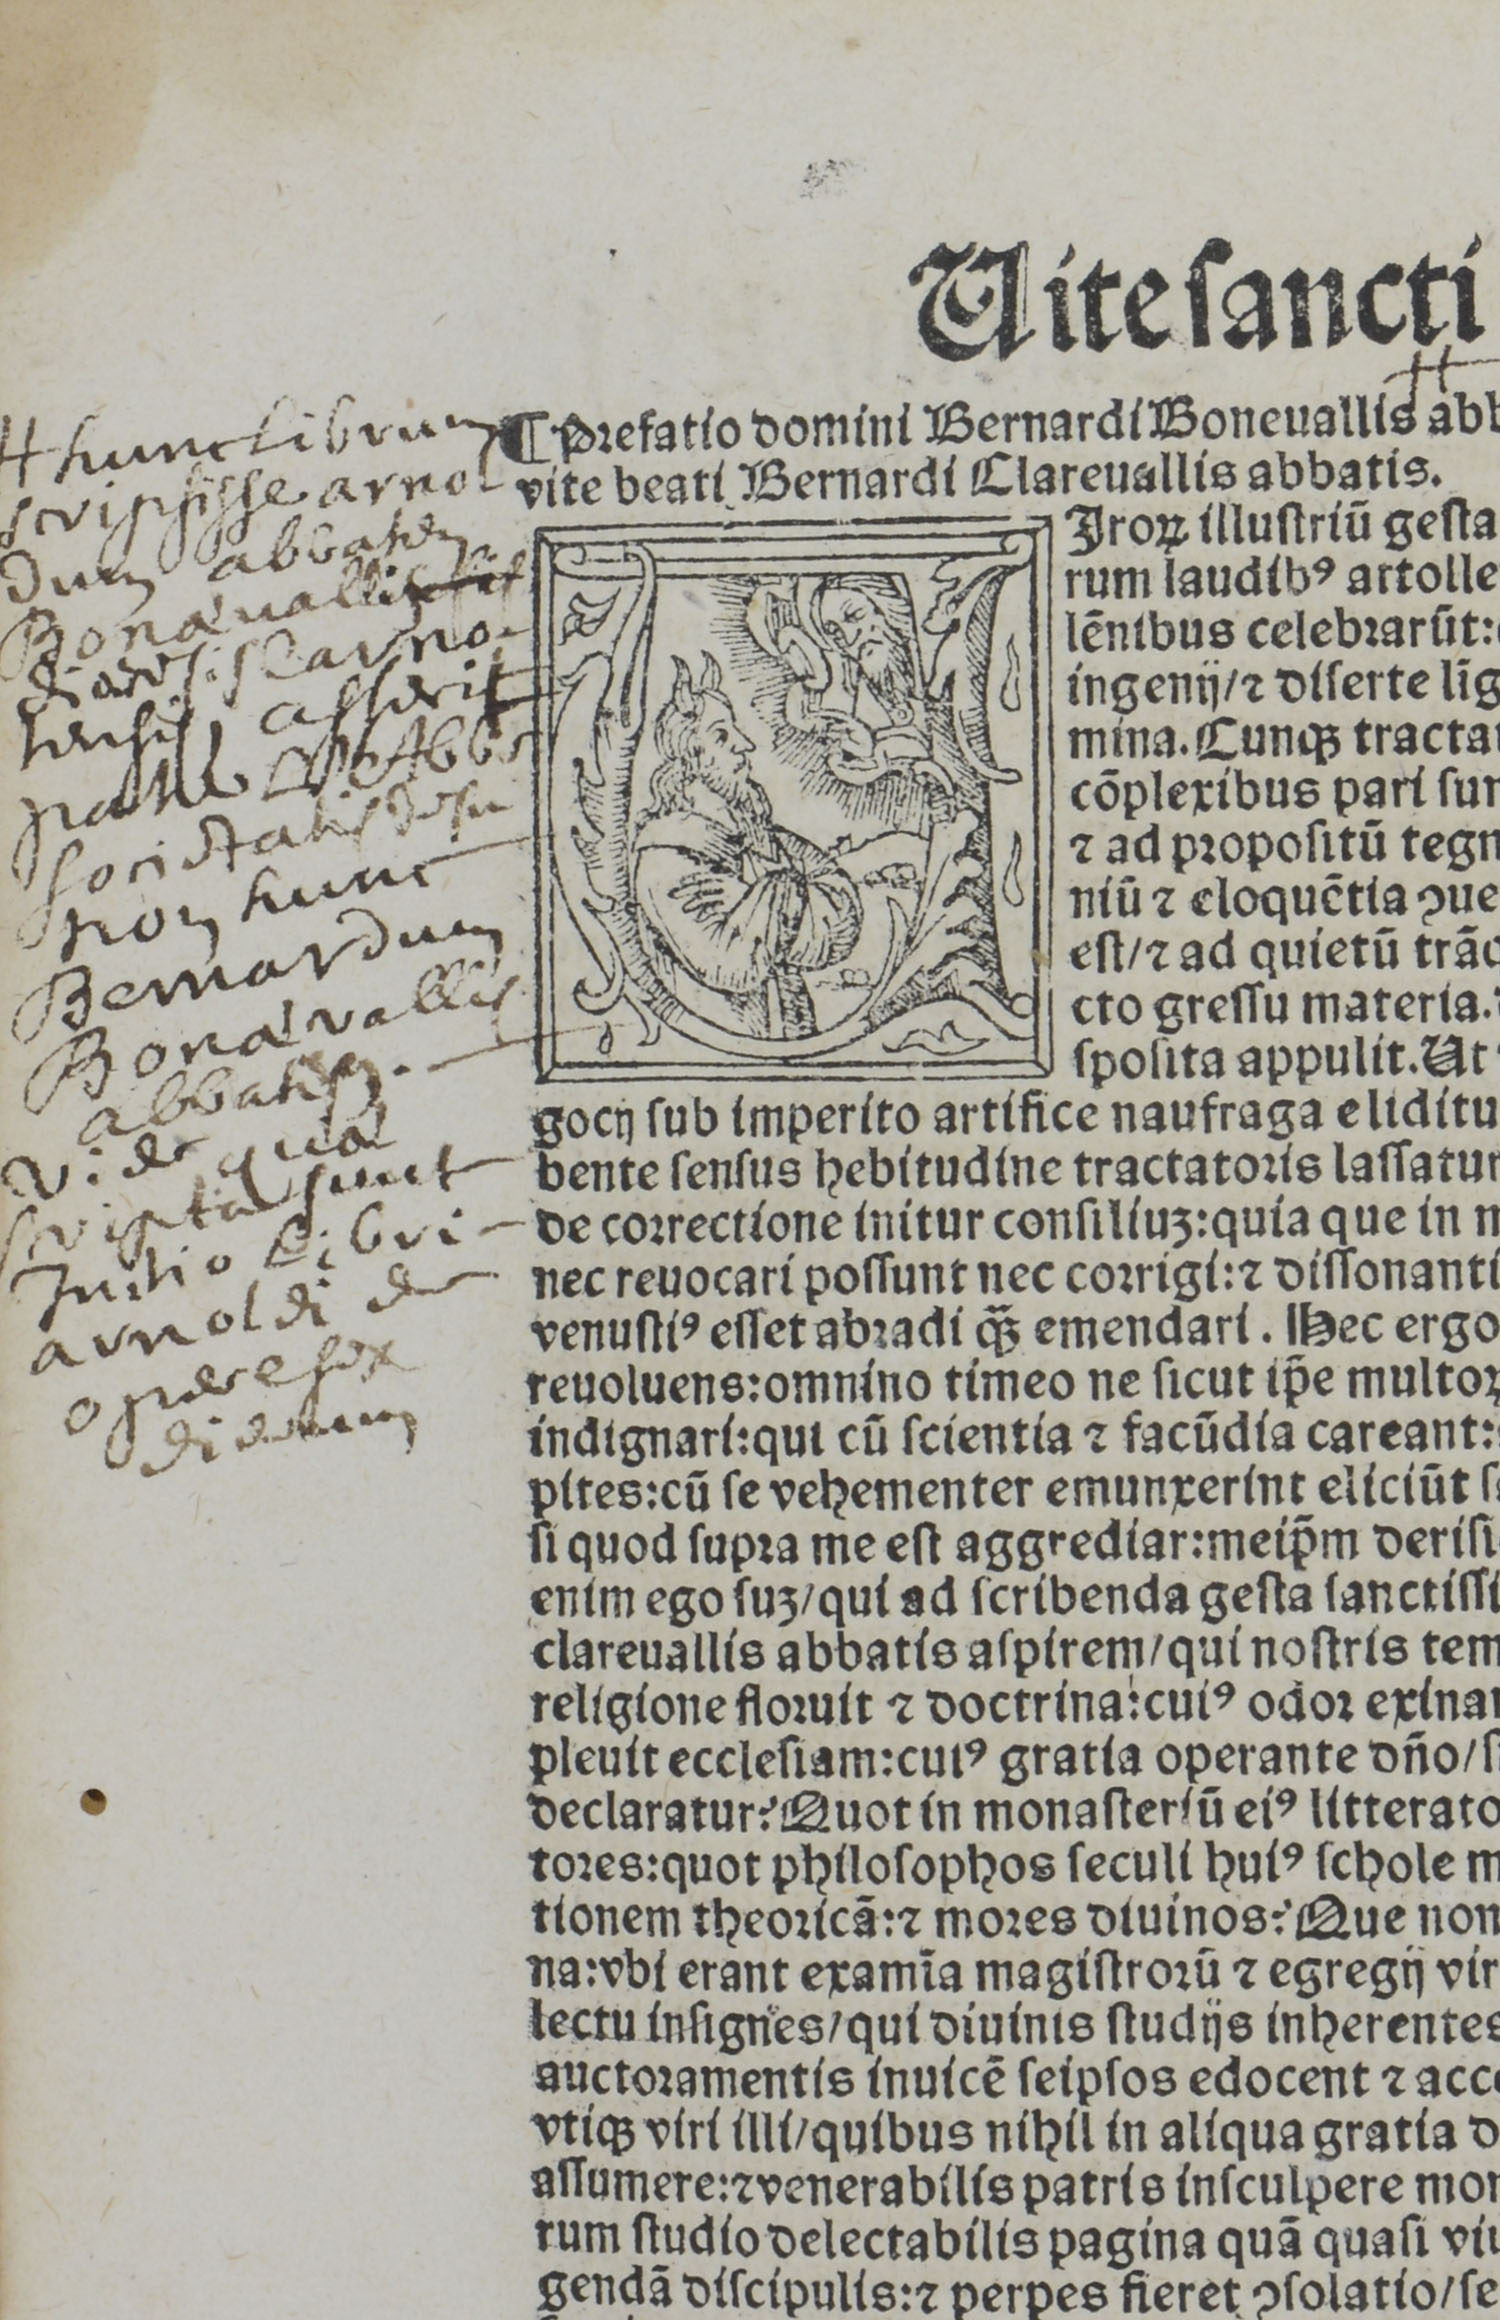 Uite sancti
¶ Prefatio domini Bernardi Boneuallis abb
vite beati Bernardi Clareuallis abbatis.
Iroꝝ illustriū gesta
rum laudibꝰ artolle
lēnibus celebrarūt:
ingenij/⁊ diserte lig
mina. Cunqꝫ tracta
cōplexibus pari sur
⁊ ad propositū tegn
niū ⁊ eloquētia ꝯue
est/⁊ ad quietū trāc
cto gressu materia.
sposita appulit. Ut
gocij sub imperito artifice naufraga eliditu
bente sensus hebitudine tractatoris lassatur
de correctione initur consiliuꝫ: quia que in n
nec reuocari possunt nec corrigi: ⁊ dissonanti
venustiꝰ esset abradi qꝫ̃ emendari. Hec ergo
reuoluens: omnino timeo ne sicut ip̄e multoꝝ
indignari: qui cū scientia ⁊ facūdia careant:
pites: cū se vehementer emunxerint eliciūt s
si quod supra me est aggrediar: meip̄m derisi
enim ego suꝫ/qui ad scribenda gesta sanctissi
clareuallis abbatis aspirem/qui nostris tem
religione floruit ⁊ doctrina: cuiꝰ odor exinan
pleuit ecclesiam: cuiꝰ gratia operante dn̄o/si
declaratur? Quot in monasteriū eiꝰ litterato
tores: quot philosophos seculi huiꝰ schole m
tionem theoricā: ⁊ mores diuinos? Que non
na: vbi erant examīa magistrorū ⁊ egregij vir
lectu insignes/qui diuinis studijs inherentes
auctoramentis inuicē seipsos edocent ⁊ acce
vtiqꝫ viri illi/quibus nihil in aliqua gratia d
assumere: ⁊ venerabilis patris insculpere mon
rum studio delectabilis pagina quā quasi viu
gendā discipulis: ⁊ perpes fieret ꝯsolatio/se
# hunc librum
scripsisse arnol
dum abbatem
Bonæuallis
cisterciensis carno-
tensis asserit
pater Abbe
societatis Jesu
non hunc
Bernardum
Bonæ vallis
abbatem.
vide quæ
scripta sunt
Initio libri
arnoldi de
opere sex
dierum